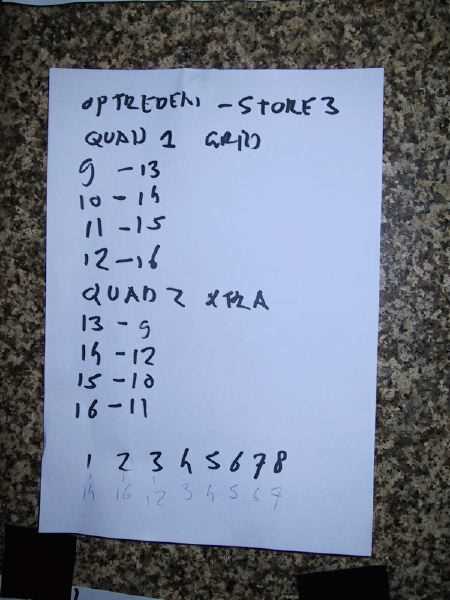 OPTREDEN - STORE 3
QUAD 1 GRID
9 - 13
10 - 14
11 - 15
12 - 16
QUAD 2 XTRA
13 - 9
14 - 12
15 - 10
16 - 11
1 2 3 4 5 6 7 8
14 16 12 3 4 5 6 7